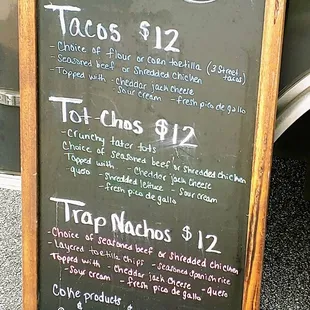 Tacos $12
-Choice of flour or corn tortilla (3 Street tacos)
-Seasoned beef or Shredded chicken
-Topped with -cheddar jack cheese
-sour cream -fresh pico de gallo
Tot-Chos $12
-Crunchy tater tots
Choice of seasoned beef or shredded chicken
Topped with -Cheddar jack cheese
-queso -shredded lettuce -sour cream
-fresh pico de gallo
Trap Nachos $12
-Choice of seasoned beef or shredded chicken
-Layered tortilla chips -seasoned spanish rice
-Topped with -cheddar jack cheese -queso
-sour cream -fresh pico de gallo
Coke products